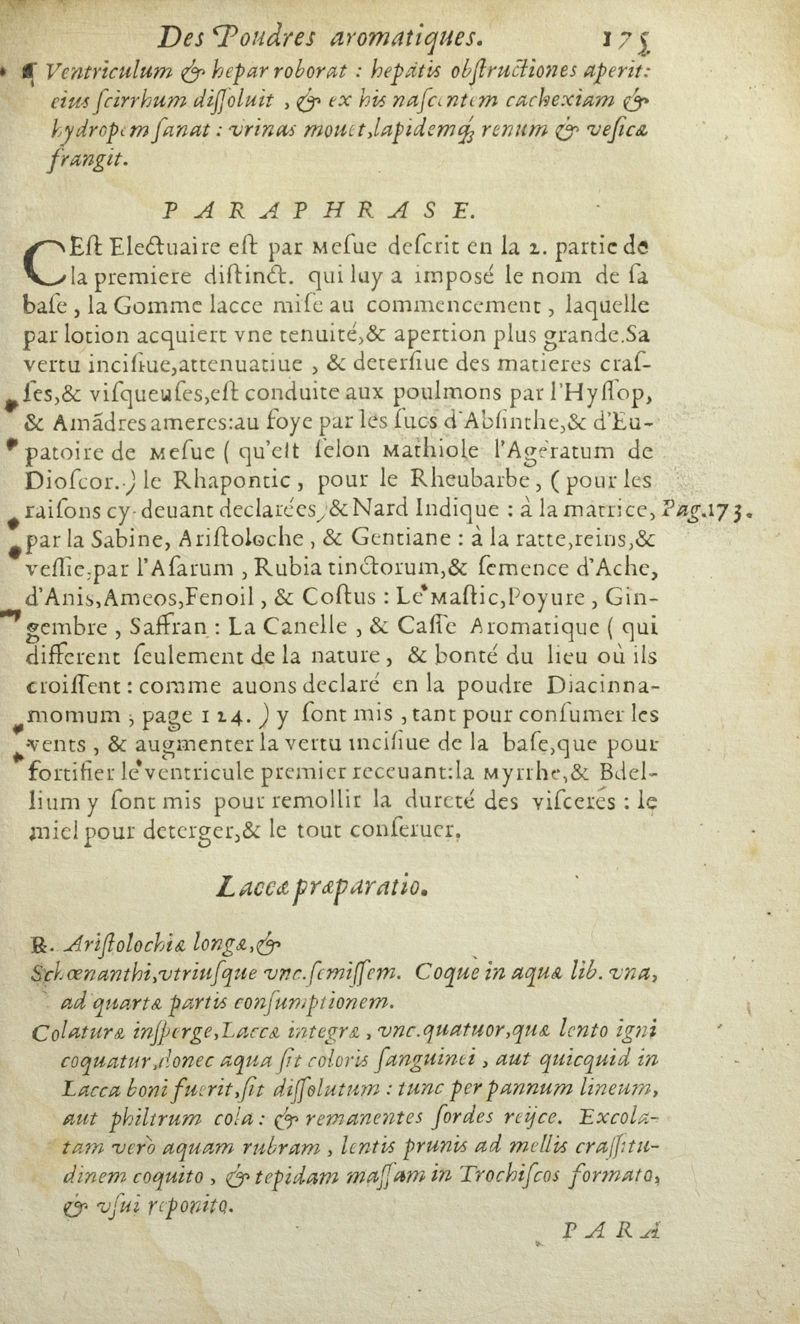 Des Poudres aromatiques. 175
¶ Ventriculum & hepar roborat : hepatis obstructiones aperit:
eius scirrhum dissoluit , & ex his nascentem cachexiam &
hydropem sanat : vrinas mouet,lapidemq; renum & vesicæ
frangit.
PARAPHRASE.
CEst Electuaire est par Mesue descrit en la 2. partie de
la premiere distinct. qui luy a imposé le nom de sa
base , la Gomme lacce mise au commencement , laquelle
par lotion acquiert vne tenuité,& apertion plus grande.Sa
vertu incisiue,attenuatiue , & detersiue des matieres cras-
ses,& visqueuses,est conduite aux poulmons par l'Hyssop,
& Amãdres ameres:au foye par les sucs d'Absinthe,& d'Eu-
patoire de Mesue ( qu'est selon Mathiole l'Ageratum de
Dioscor.) le Rhapontic , pour le Rheubarbe , ( pour les
raisons cy-deuant declarées,& Nard Indique : à la matrice, Pag.173.
par la Sabine, Aristoloche , & Gentiane : à la ratte,reins,&
vessie,par l'Asarum , Rubia tinctorum,& semence d'Ache,
d'Anis,Ameos,Fenoil , & Costus : Le*Mastic,Poyure , Gin-
gembre , Saffran : La Canelle , & Casse Aromatique ( qui
different seulement de la nature , & bonté du lieu où ils
croissent : comme auons declaré en la poudre Diacinna-
momum , page 124. ) y sont mis , tant pour consumer les
vents , & augmenter la vertu incisiue de la base,que pour
fortifier le*ventricule premier receuant:la Myrrhe,& Bdel-
lium y sont mis pour remollir la dureté des visceres : le
miel pour deterger,& le tout conseruer.
Laccæ præparatio.
℞. Aristolochiæ longæ,&
Schœnanthi,vtriusque vnc.semissem. Coque in aquæ lib. vna,
ad quartæ partis consumptionem.
Colaturæ insperge,Laccæ integræ , vnc.quatuor,quæ lento igni
coquatur,donec aqua sit coloris sanguinei , aut quicquid in
Lacca boni fuerit,sit dissolutum : tunc per pannum lineum,
aut philtrum cola : & remanentes sordes reijce. Excola-
tam vero aquam rubram , lentis prunis ad mellis crassitu-
dinem coquito , & tepidam massam in Trochiscos formato,
& vsui reponito.
PARA